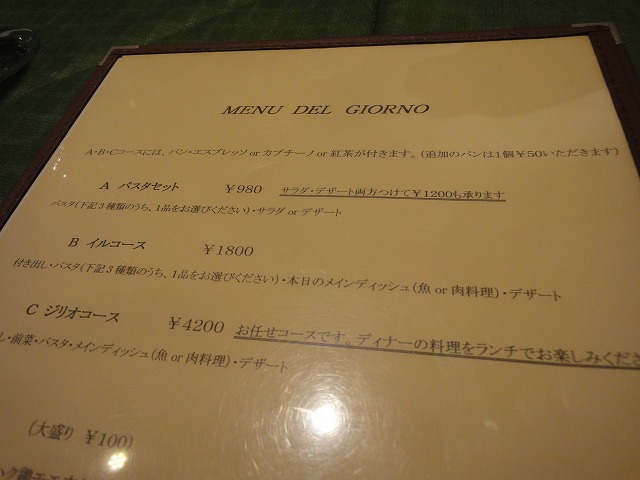 MENU DEL GIORNO
A・B・Cコースには、パン・エスプレッソ or カプチーノ or 紅茶が付きます。(追加のパンは1個￥50いただきます)
A パスタセット ￥980 サラダ・デザート両方つけて￥1200も承ります
パスタ(下記3種類のうち、1品をお選びください)・サラダ or デザート
B イルコース ￥1800
付き出し・パスタ(下記3種類のうち、1品をお選びください)・本日のメインディッシュ(魚 or 肉料理)・デザート
C ジリオコース ￥4200 お任せコースです。ディナーの料理をランチでお楽しみくださ
し・前菜・パスタ・メインディッシュ(魚 or 肉料理)・デザート
(大盛り ￥100)